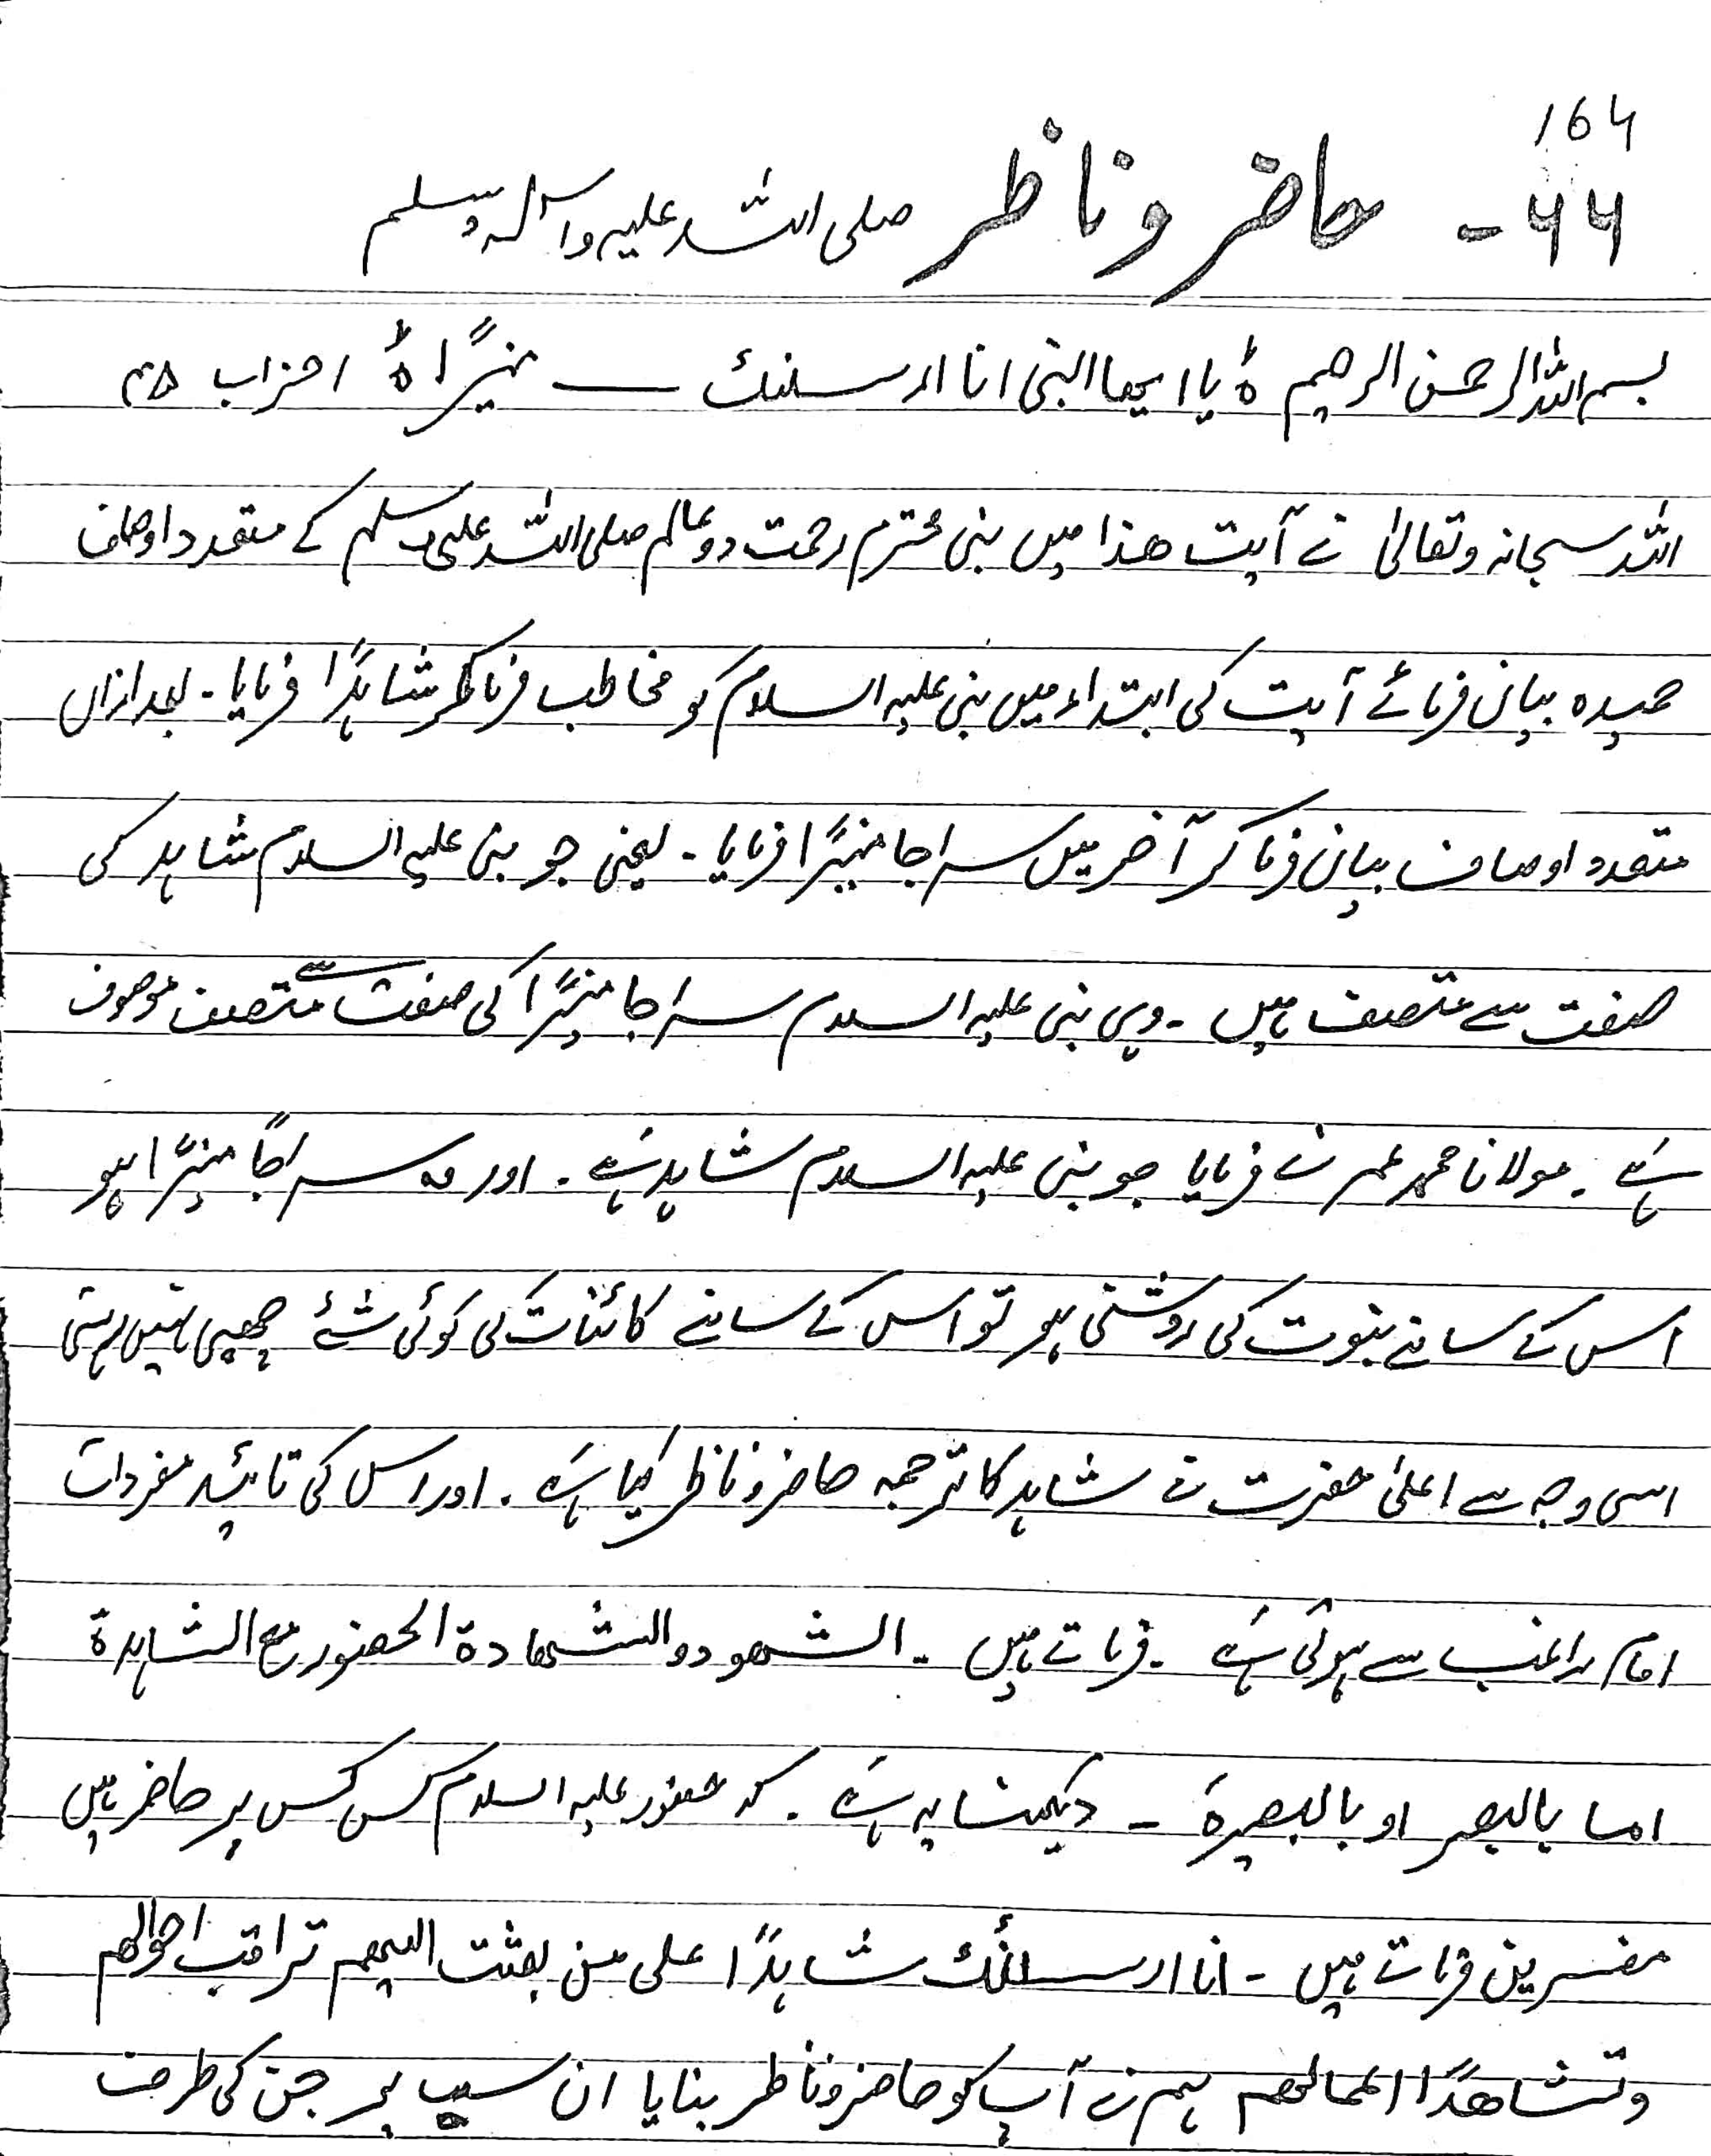 164
۶۶ - حاضر و ناظر صلی اللہ علیہ وآلہ وسلم
بسم اللہ الرحمن الرحیم ہ یا ایھا النبی انا ارسلنک — منیرًا ہ احزاب ۴۵
اللہ سبحانہ وتعالیٰ نے آیت ھذا میں نبی محترم رحمت دو عالم صلی اللہ علیہ وسلم کے متعدد اوصاف
حمیدہ بیان فرمائے آیت کی ابتداء میں نبی علیہ السلام کو مخاطب فرما کر شاہدًا فرمایا۔ بعد ازاں
متعدد اوصاف بیان فرما کر آخر میں سراجا منیرًا فرمایا۔ یعنی جو نبی علیہ السلام شاہد کی
صفت سے متصف ہیں۔ وہی نبی علیہ السلام سراجا منیرًا کی صفت سے متصف موصوف
ہے۔ مولانا محمد عمر نے فرمایا جو نبی علیہ السلام شاہد ہے۔ اور وہ سراجًا منیرًا ہو
اس کے سامنے نبوت کی روشنی ہو تو اس کے سامنے کائنات کی کوئی شئے چھپی نہیں رہتی
اسی وجہ سے اعلیٰ حضرت نے شاہد کا ترجمہ حاضر و ناظر کیا ہے۔ اور اس کی تائید مفردات
امام راغب سے ہوتی ہے ۔ فرماتے ہیں ۔ الشھود والشھادۃ الحضور مع الشاہدۃ
اما بالبصر او بالبصیرۃ ۔ دیکھنا یہ ہے۔ کہ حضور علیہ السلام کس کس پر حاضر ہیں
مفسرین فرماتے ہیں ۔ انا ارسلنٰک شاہدًا علی من بعثت الیھم تراقب احوالھم
وتشاھدًا اعمالھم ہم نے آپ کو حاضر و ناظر بنایا ان سب پر جن کی طرف